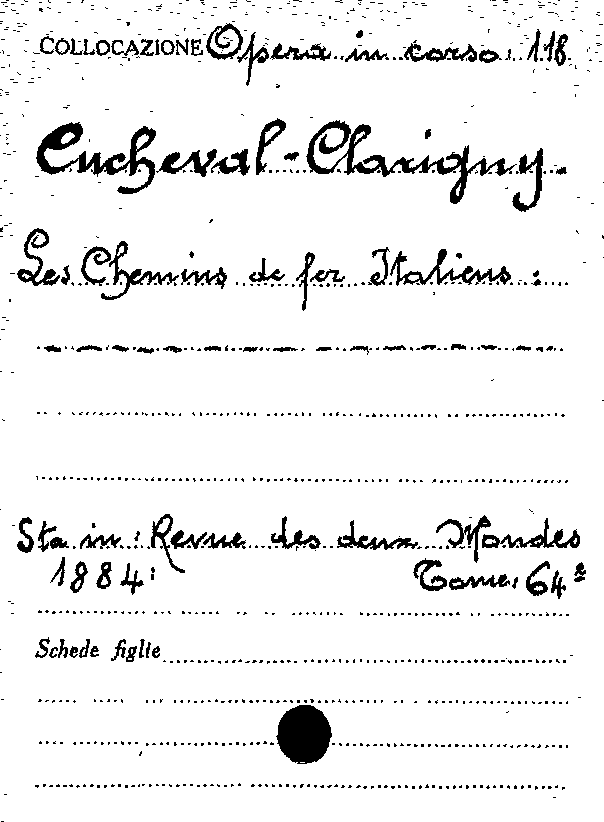 COLLOCAZIONE Opera in corso: 118
Cucheval-Clarigny.
Les Chemins de fer Italiens:
Sta in: Revue des deux Mondes
1884: Tome: 64è
Schede figlie